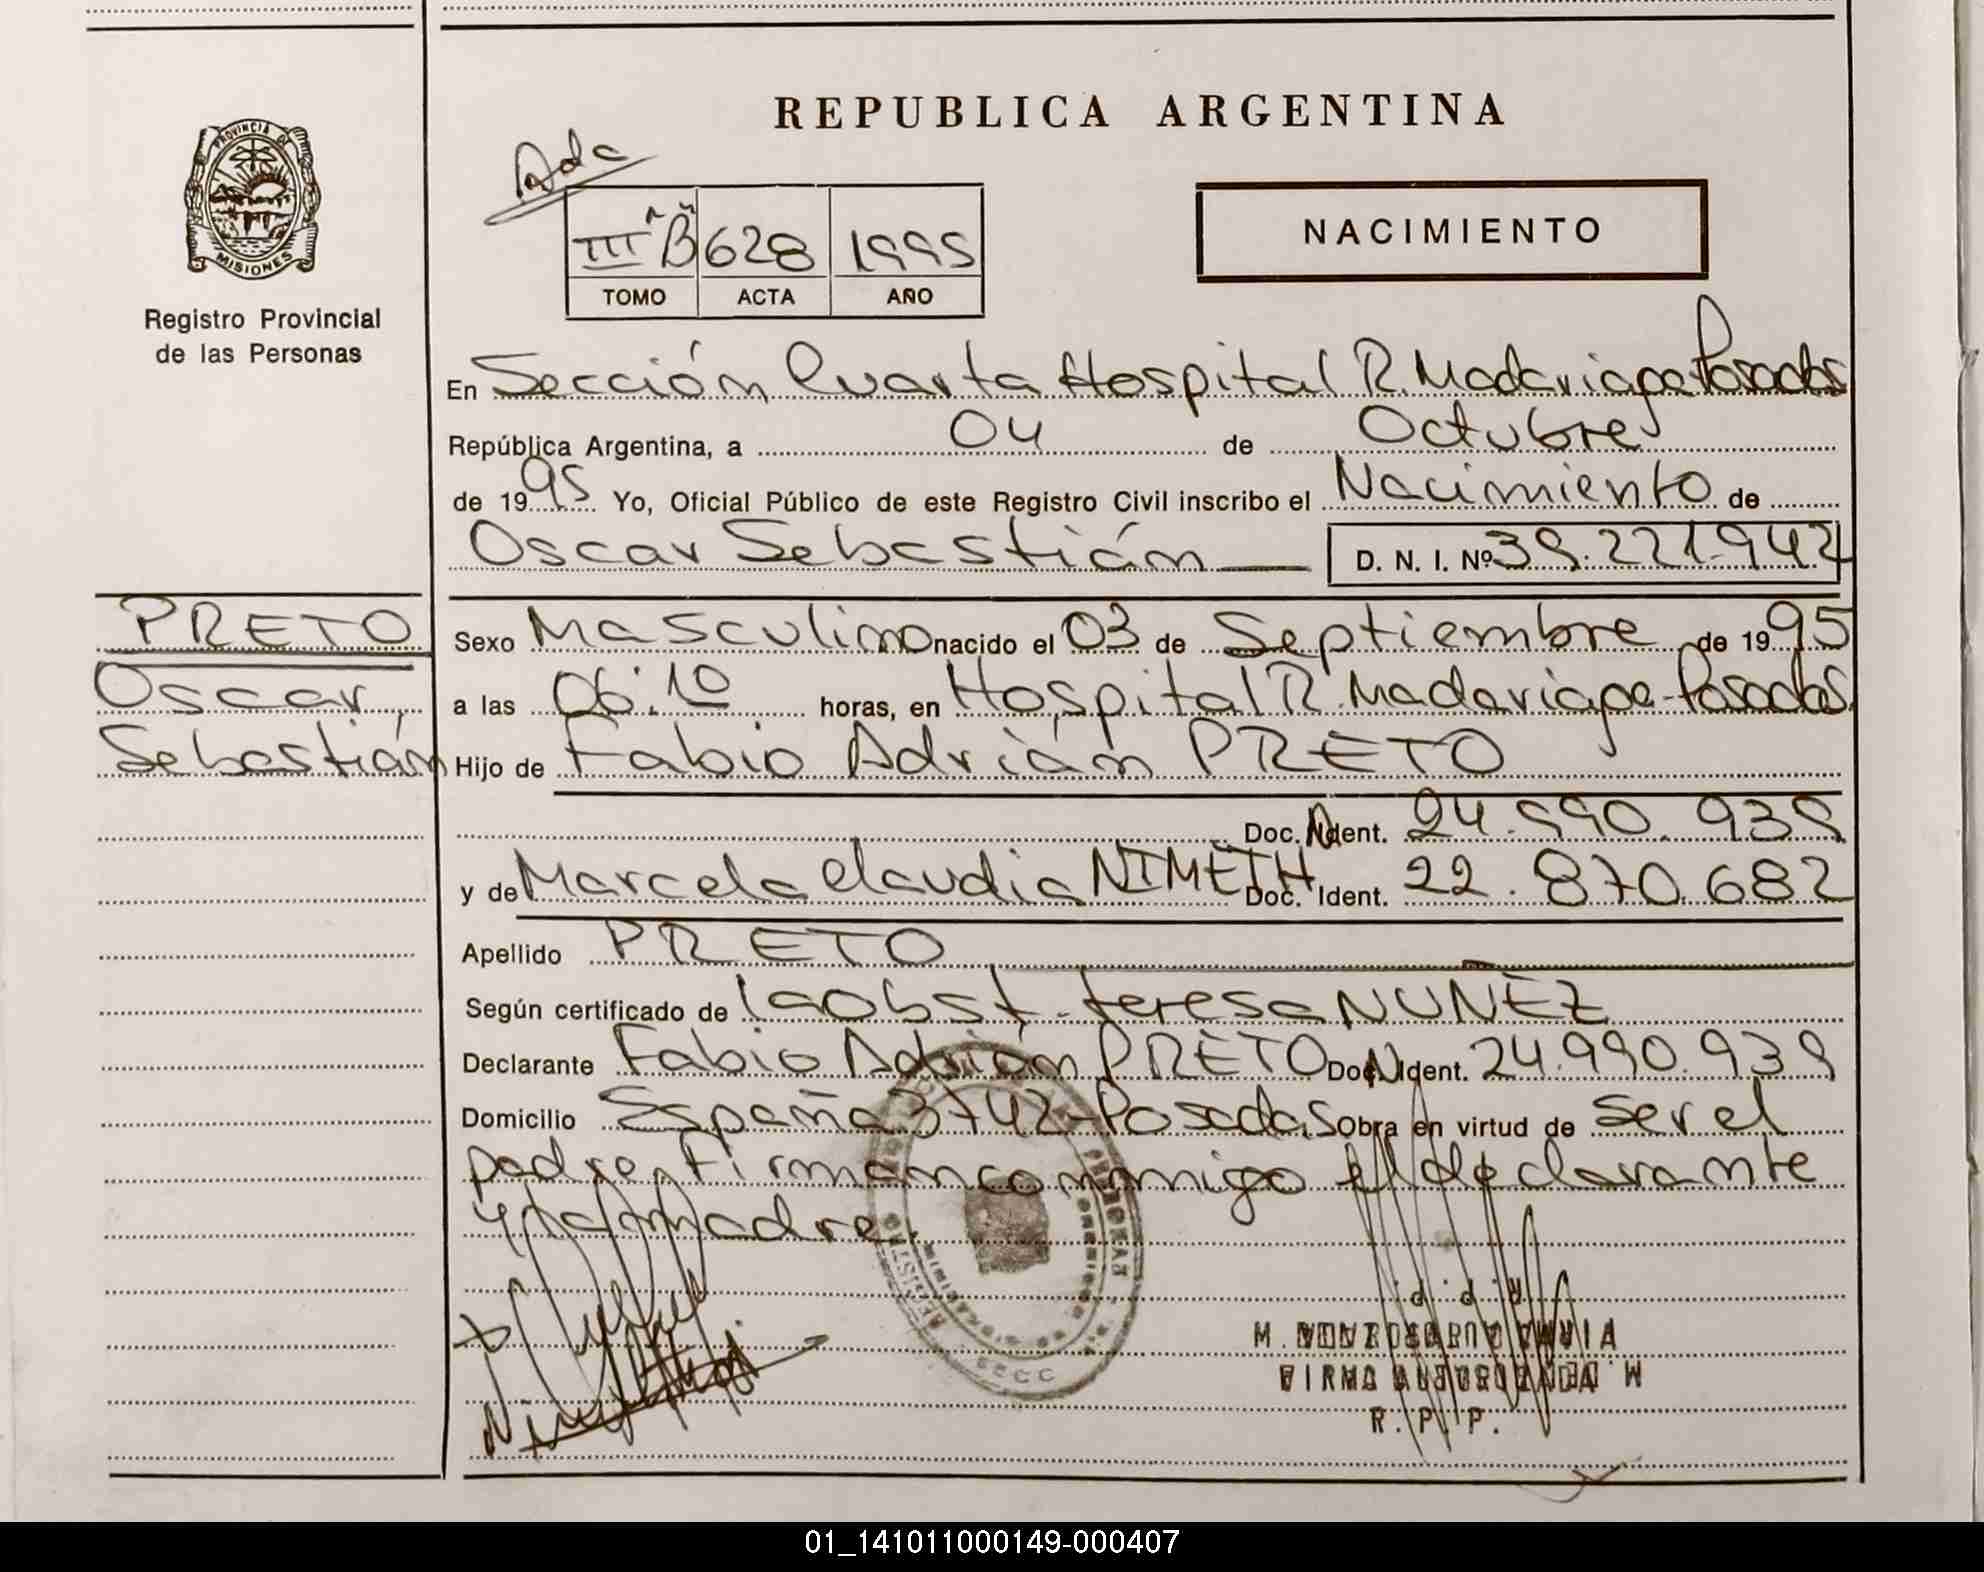 REPUBLICA ARGENTINA
PROVINCIA DE
MISIONES
Registro Provincial
de las Personas
Ada
III "B" 628 1995
TOMO ACTA AÑO
NACIMIENTO
En Sección Cuarta Hospital R. Madariaga Posadas
República Argentina, a 04 de Octubre
de 1995 Yo, Oficial Público de este Registro Civil inscribo el Nacimiento de
Oscar Sebastián D. N. I. Nº 39.221.942
PRETO
Oscar
Sebastián
Sexo Masculino nacido el 03 de Septiembre de 1995
a las 06:10 horas, en Hospital R. Madariaga-Posadas
Hijo de Fabio Adrián PRETO
Doc. N Ident. 24.990.939
y de Marcela Claudia NIMETH Doc. Ident. 22.870.682
Apellido PRETO
Según certificado de la Obst. Teresa NUÑEZ
Declarante Fabio Adrián PRETO Doc. N Ident. 24.990.939
Domicilio España 3742-Posadas Obra en virtud de ser el
padre, Firman conmigo el declarante
y la madre.
R. P. P.
FIRMA AUTORIZADA
R. P. P.
01_141011000149-000407